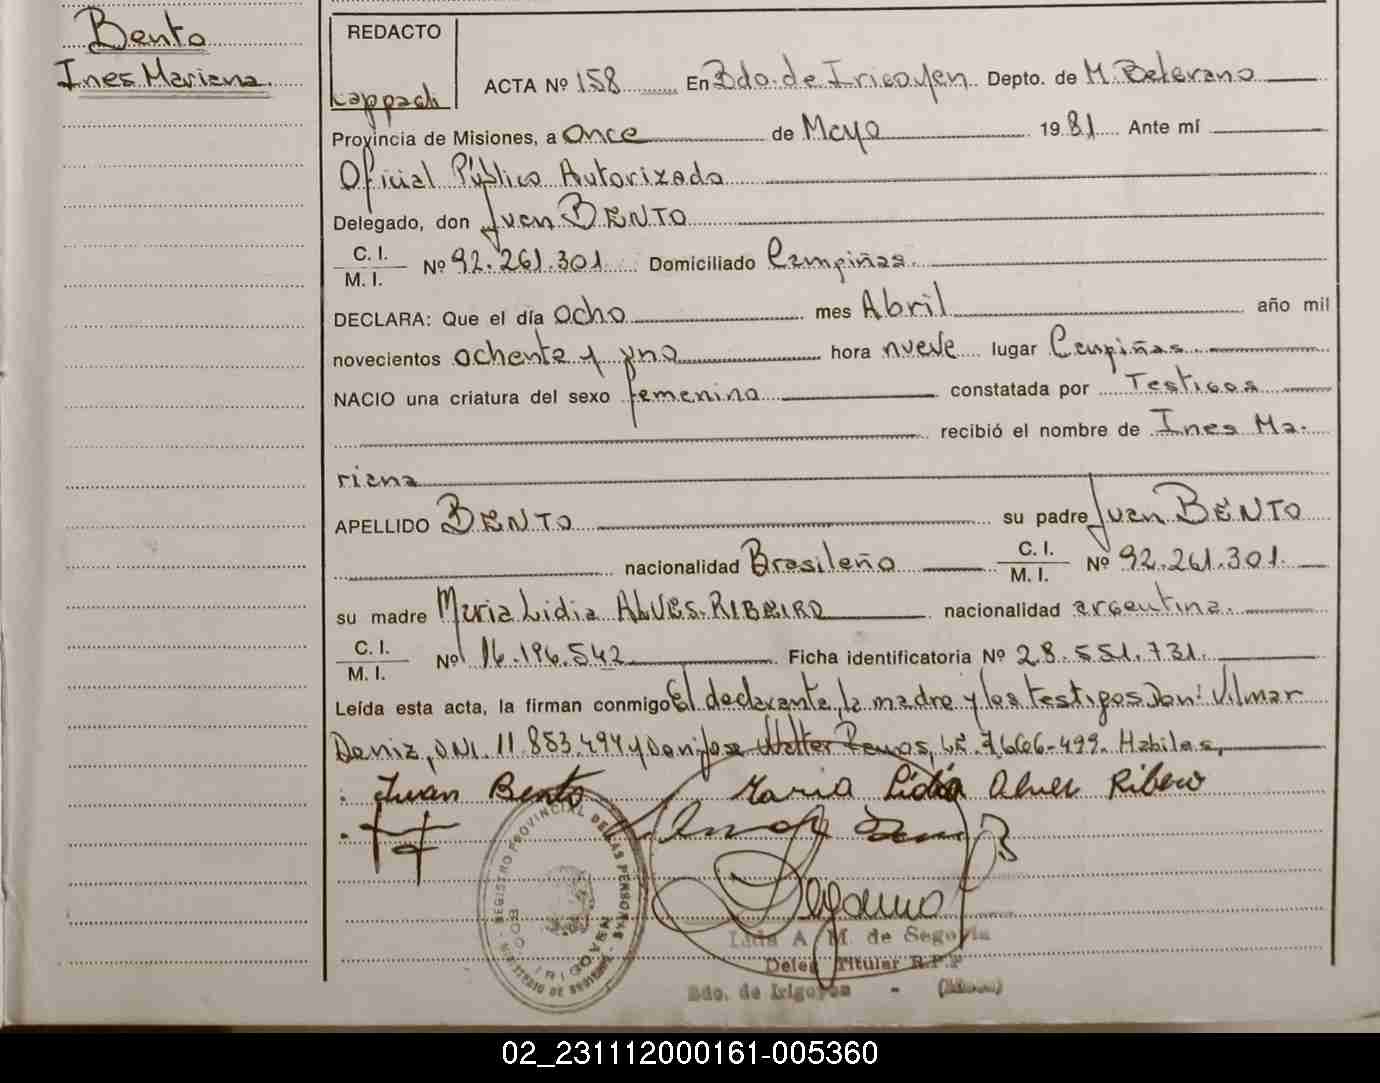 Bento
Ines Mariana
REDACTO
Lappach
ACTA Nº 158 En Bdo. de Irigoyen Depto. de M. Belgrano
Provincia de Misiones, a once de Mayo 1981 Ante mí
Oficial Público Autorizado
Delegado, don Juan BENTO
C. I.
M. I. Nº 92.261.301 Domiciliado Campiñas.
DECLARA: Que el día ocho mes Abril año mil
novecientos ochenta y uno hora nueve lugar Campiñas
NACIO una criatura del sexo femenino constatada por Testigos
recibió el nombre de Ines Ma-
riana
APELLIDO BENTO su padre Juan BENTO
nacionalidad Brasileño C. I. M. I. Nº 92.261.301.
su madre Maria Lidia ALVES-RIBEIRO nacionalidad argentina.
C. I.
M. I. Nº 16.196.542 Ficha identificatoria Nº 28.551.731.
Leída esta acta, la firman conmigo El declarante, la madre y los testigos Don: Vilmar
Deniz, DNI. 11.853.494 y Don Jose Walter Ramos, LE. 7.606.499. Habiles,
Juan Bento Maria Lidia Alves Ribero
REGISTRO PROVINCIAL DE LAS PERSONAS
MINISTERIO DE GOBIERNO
IRIGOYEN
Lida A. M. de Segovia
Deleg. Titular R.P.P
Bdo. de Irigoyen - (Mnes)
02_231112000161-005360